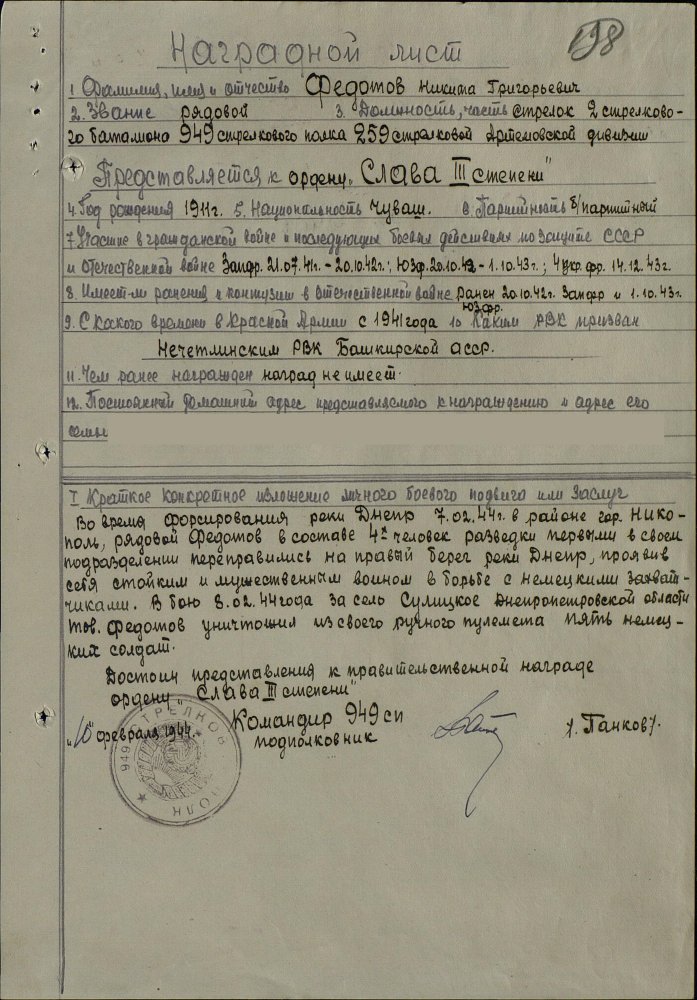 198
Наградной лист
1 Фамилия, имя и отчество Федотов Никита Григорьевич
2. Звание рядовой 3. Должность, часть стрелок 2 стрелково-
го батальона 949 стрелкового полка 259 стрелковой Артемовской дивизии
Представляется к ордену „Слава III степени"
4. Год рождения 1911 г. 5. Национальность чуваш. 6. Партийность б/партийный
7 Участие в гражданской войне и последующих боевых действиях по защите СССР
и отечественной войне Запфр. 21.07.41г. - 20.10.42г.; Юзф. 20.10.42 - 1.10.43г.; 4 Укр. фр. 14.12.43г.
8. Имеет-ли ранения и контузии в отечественной войне ранен 20.10.42г. Запфр и 1.10.43г.
Юзфр.
9. С какого времени в Красной Армии с 1941 года 10 Каким РВК призван
Нечетлинским РВК Башкирской асср.
11. Чем ранее награжден наград не имеет.
12. Постоянный домашний адрес представляемого к награждению и адрес его
семьи
I Краткое конкретное изложение личного боевого подвига или заслуг
Во время форсирования реки Днепр 7.02.44г. в районе гор. Нико-
поль, рядовой Федотов в составе 4х человек разведки первыми в своем
подразделении переправились на правый берег реки Днепр, проявив
себя стойким и мужественным воином в борьбе с немецкими захват-
чиками. В бою 8.02.44 года за село Сулицкое Днепропетровской области
тов. Федотов уничтожил из своего ручного пулемета пять немец-
ких солдат.
Достоин представления к правительственной награде
ордену „Слава III степени"
Командир 949 сп
„10" февраля 1944г. подполковник /. Панков/.
949 СТРЕЛКОВ ПОЛК